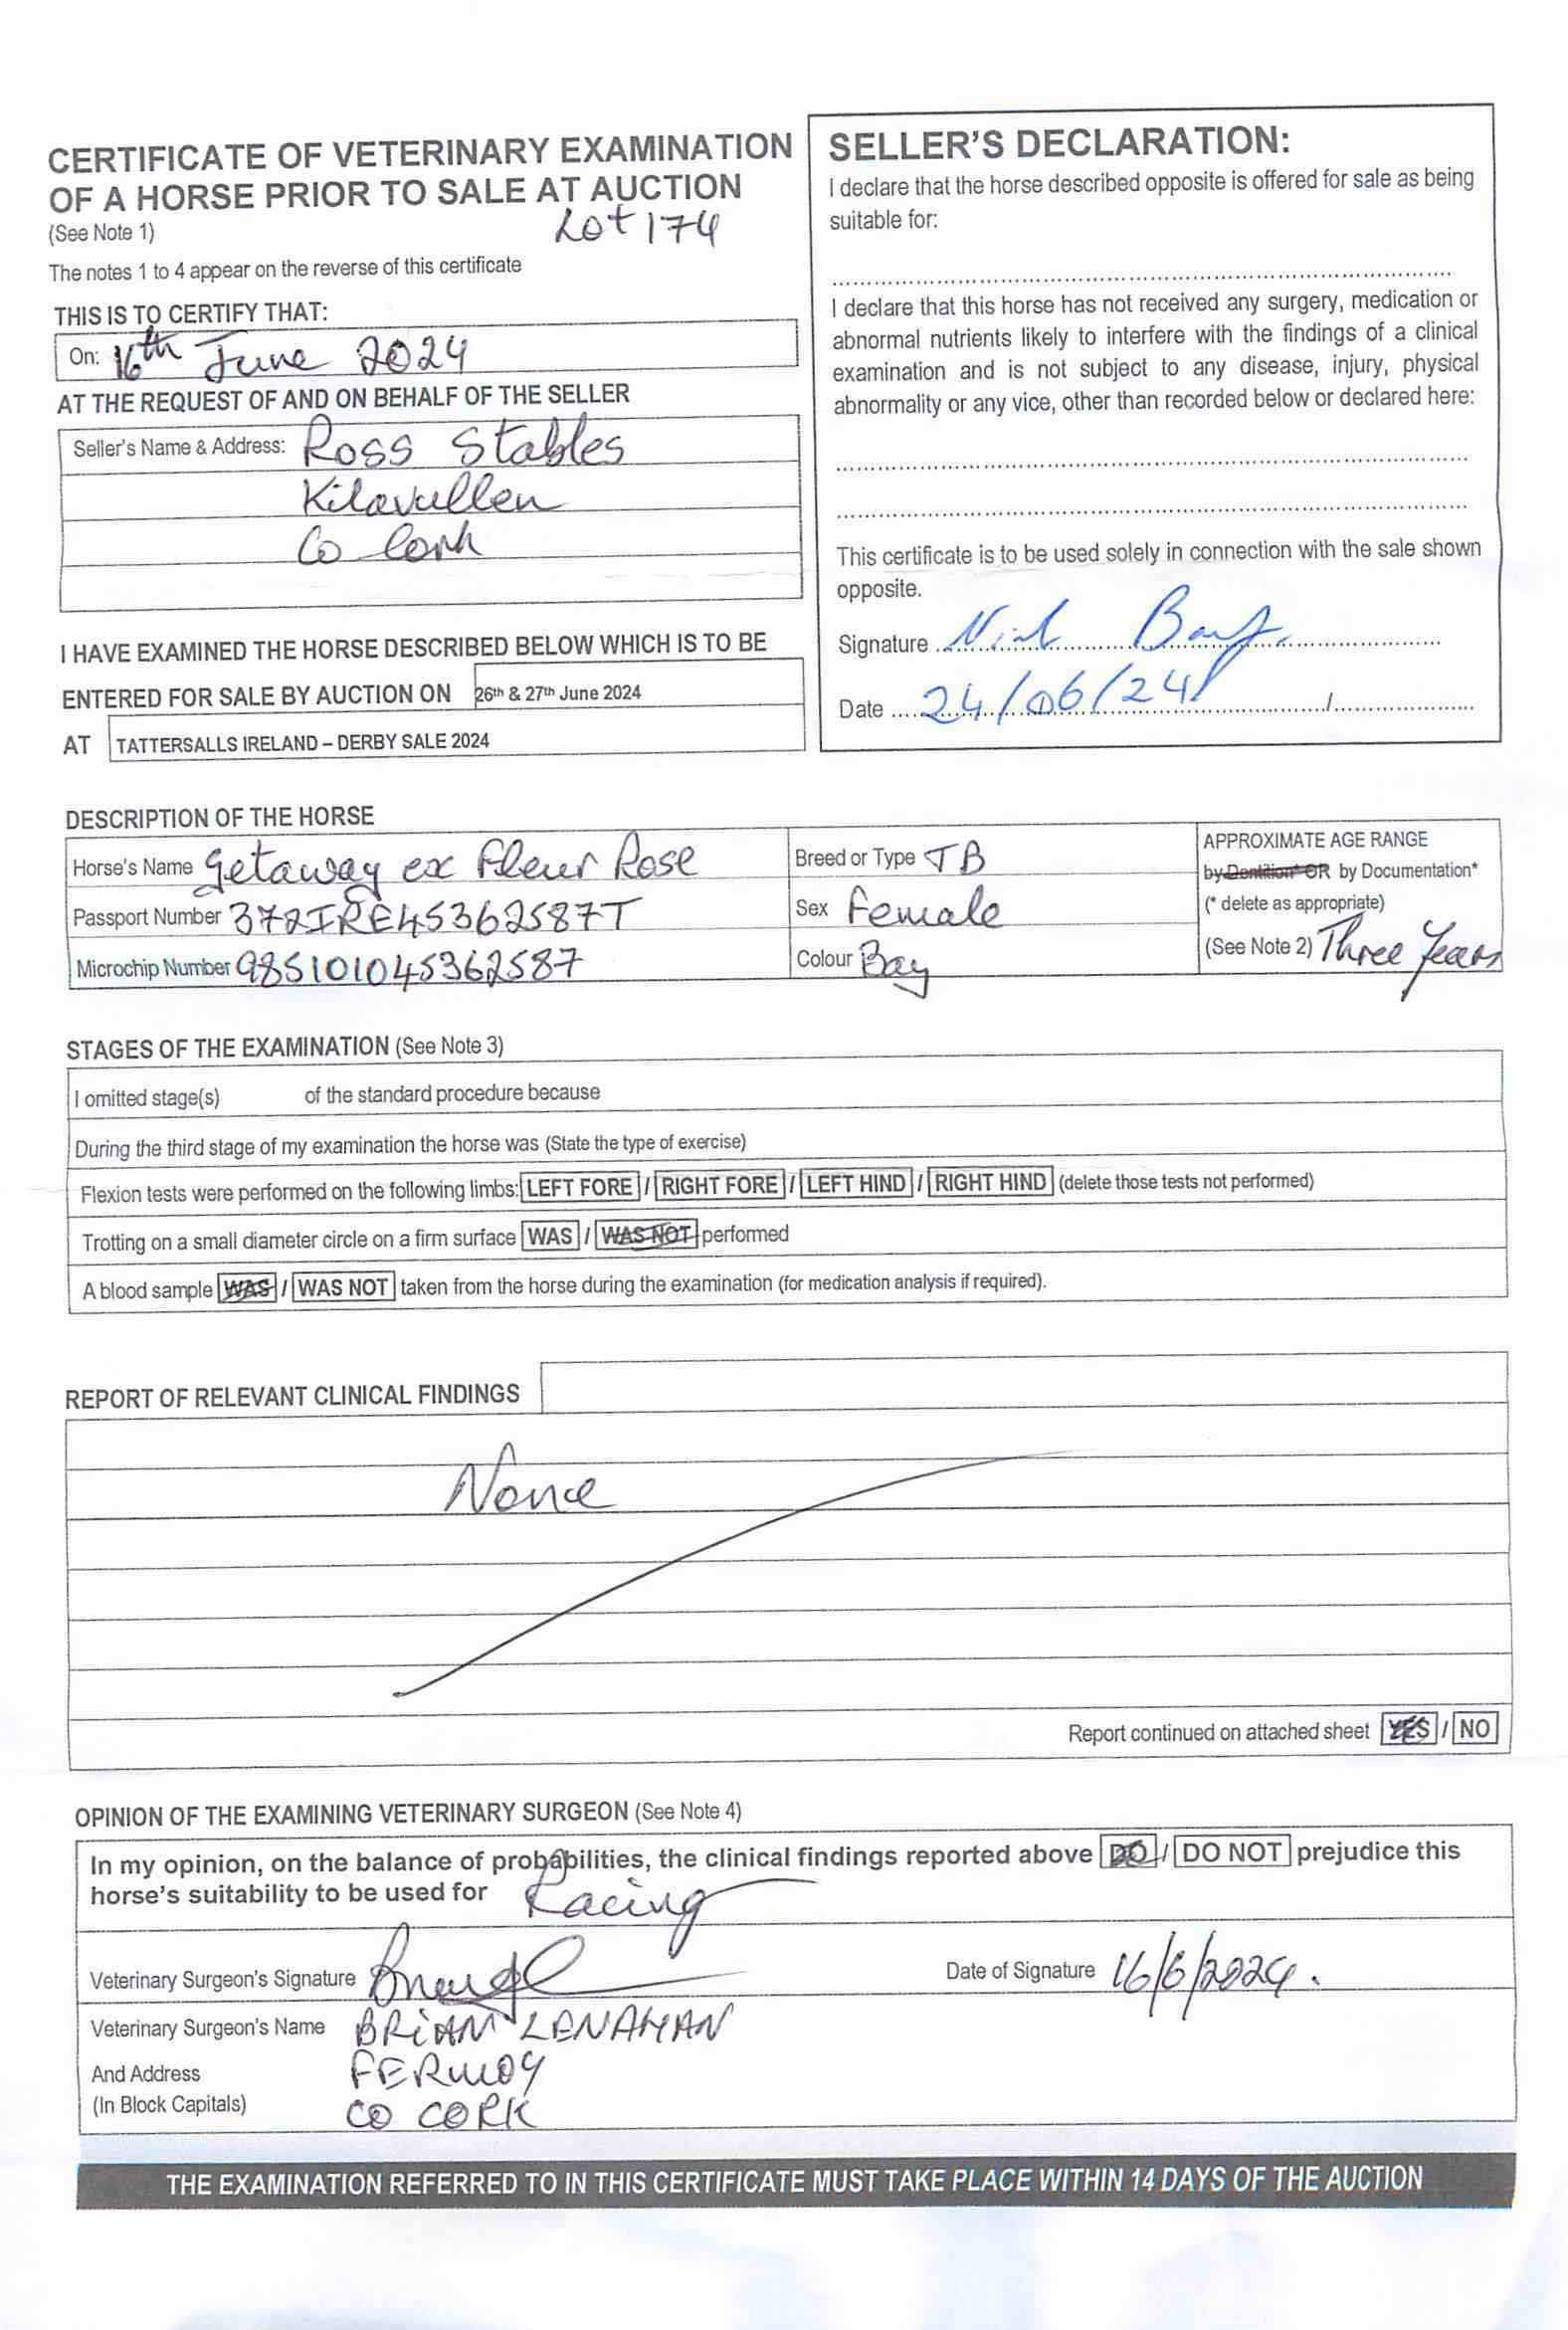 CERTIFICATE OF VETERINARY EXAMINATION
OF A HORSE PRIOR TO SALE AT AUCTION
(See Note 1)
Lot 174
The notes 1 to 4 appear on the reverse of this certificate
THIS IS TO CERTIFY THAT:
On: 16th June 2024
AT THE REQUEST OF AND ON BEHALF OF THE SELLER
Seller's Name & Address: Ross Stables
Kilavullen
Co Cork
I HAVE EXAMINED THE HORSE DESCRIBED BELOW WHICH IS TO BE
ENTERED FOR SALE BY AUCTION ON 26th & 27th June 2024
AT TATTERSALLS IRELAND – DERBY SALE 2024
SELLER'S DECLARATION:
I declare that the horse described opposite is offered for sale as being
suitable for:
I declare that this horse has not received any surgery, medication or
abnormal nutrients likely to interfere with the findings of a clinical
examination and is not subject to any disease, injury, physical
abnormality or any vice, other than recorded below or declared here:
This certificate is to be used solely in connection with the sale shown
opposite.
Signature
Date 24/06/24 /
DESCRIPTION OF THE HORSE
Horse's Name Getaway ex Fleur Rose
Passport Number 372IRE45362587T
Microchip Number 985101045362587
Breed or Type TB
Sex Female
Colour Bay
APPROXIMATE AGE RANGE
by Dentition* OR by Documentation*
(* delete as appropriate)
(See Note 2) Three Years
STAGES OF THE EXAMINATION (See Note 3)
I omitted stage(s) of the standard procedure because
During the third stage of my examination the horse was (State the type of exercise)
Flexion tests were performed on the following limbs: LEFT FORE / RIGHT FORE / LEFT HIND / RIGHT HIND (delete those tests not performed)
Trotting on a small diameter circle on a firm surface WAS / WAS NOT performed
A blood sample WAS / WAS NOT taken from the horse during the examination (for medication analysis if required).
REPORT OF RELEVANT CLINICAL FINDINGS
None
Report continued on attached sheet YES / NO
OPINION OF THE EXAMINING VETERINARY SURGEON (See Note 4)
In my opinion, on the balance of probabilities, the clinical findings reported above DO / DO NOT prejudice this
horse's suitability to be used for Racing
Veterinary Surgeon's Signature
Date of Signature 16/6/2024.
Veterinary Surgeon's Name BRIAN LENAHAN
And Address FERMOY
(In Block Capitals) CO CORK
THE EXAMINATION REFERRED TO IN THIS CERTIFICATE MUST TAKE PLACE WITHIN 14 DAYS OF THE AUCTION